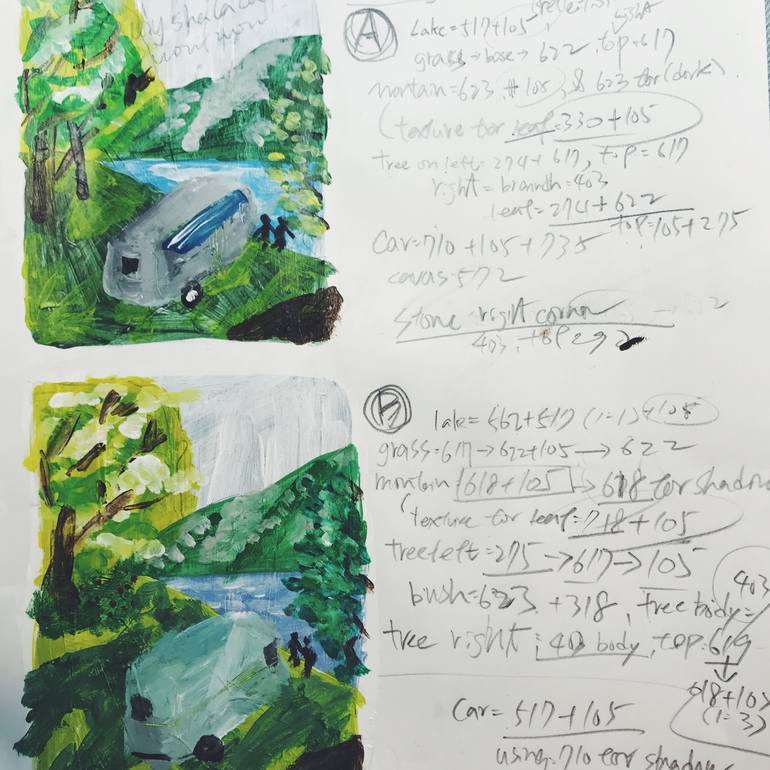 Ⓐ Lake=517+105
grass→base→622, top.617
montain=623, #105, & 623 for(dark)
(texture for leaf=330+105
tree on left=274+617, top=617
right=branch=403
leaf=274+622
top=105+275
Car=710+105+735
cavas=572
Stone right corner
403, top 292
Ⓑ lake=562+517 (1=1)+105
grass=617→622+105→622
montain 618+105→618 for shadow
(texture for leaf=718+105
tree left=275→617→105
bush=623+318, tree body=
403
tree right:403 body, top=619
618+105
(1=3)
Car=517+105
using=710 for shadow